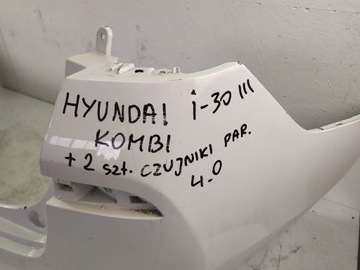 HYUNDAI i-30 III
KOMBI
+ 2 szt. CZUJNIKI PAR.
4.0